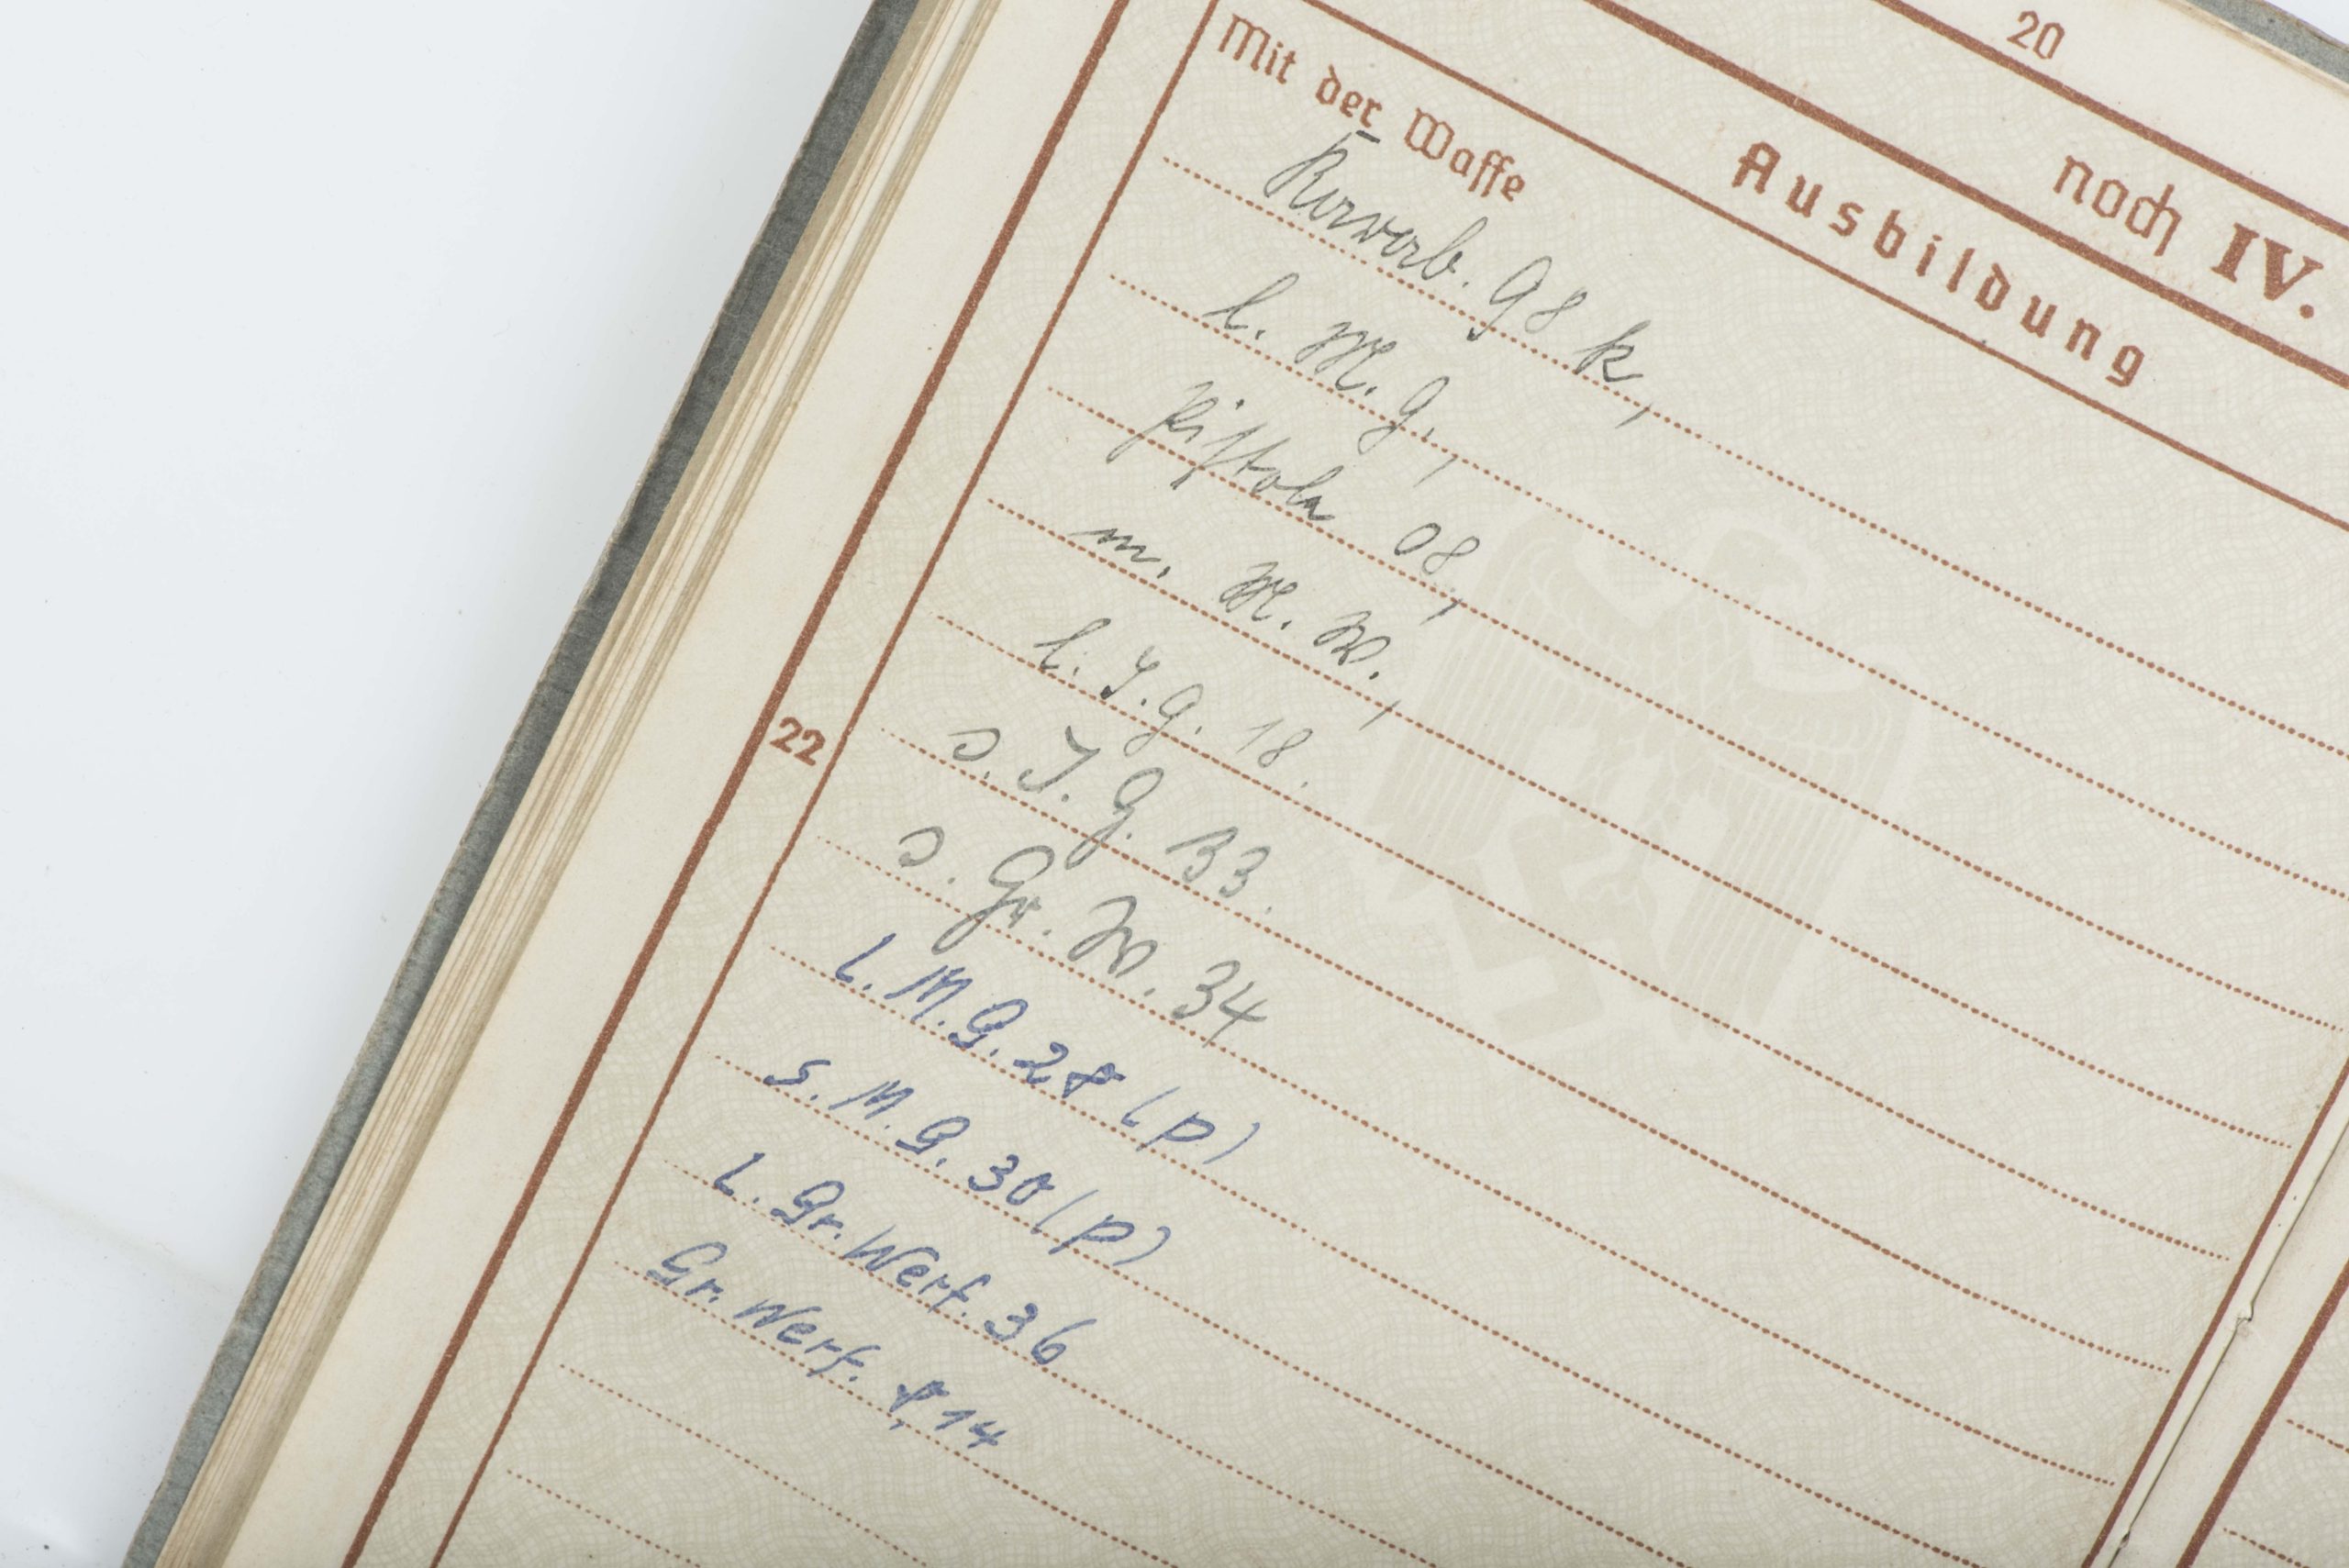 20
noch IV.
Ausbildung
Mit der Waffe
22
98 k,
l. M. G.,
Pistole 08,
m. M. W.,
l. I. G. 18.
s. I. G. 33.
s. Gr. W. 34
L. M. G. 28 (p)
S. M. G. 30 (p)
L. Gr. Werf. 36
Gr. Werf. 8,14